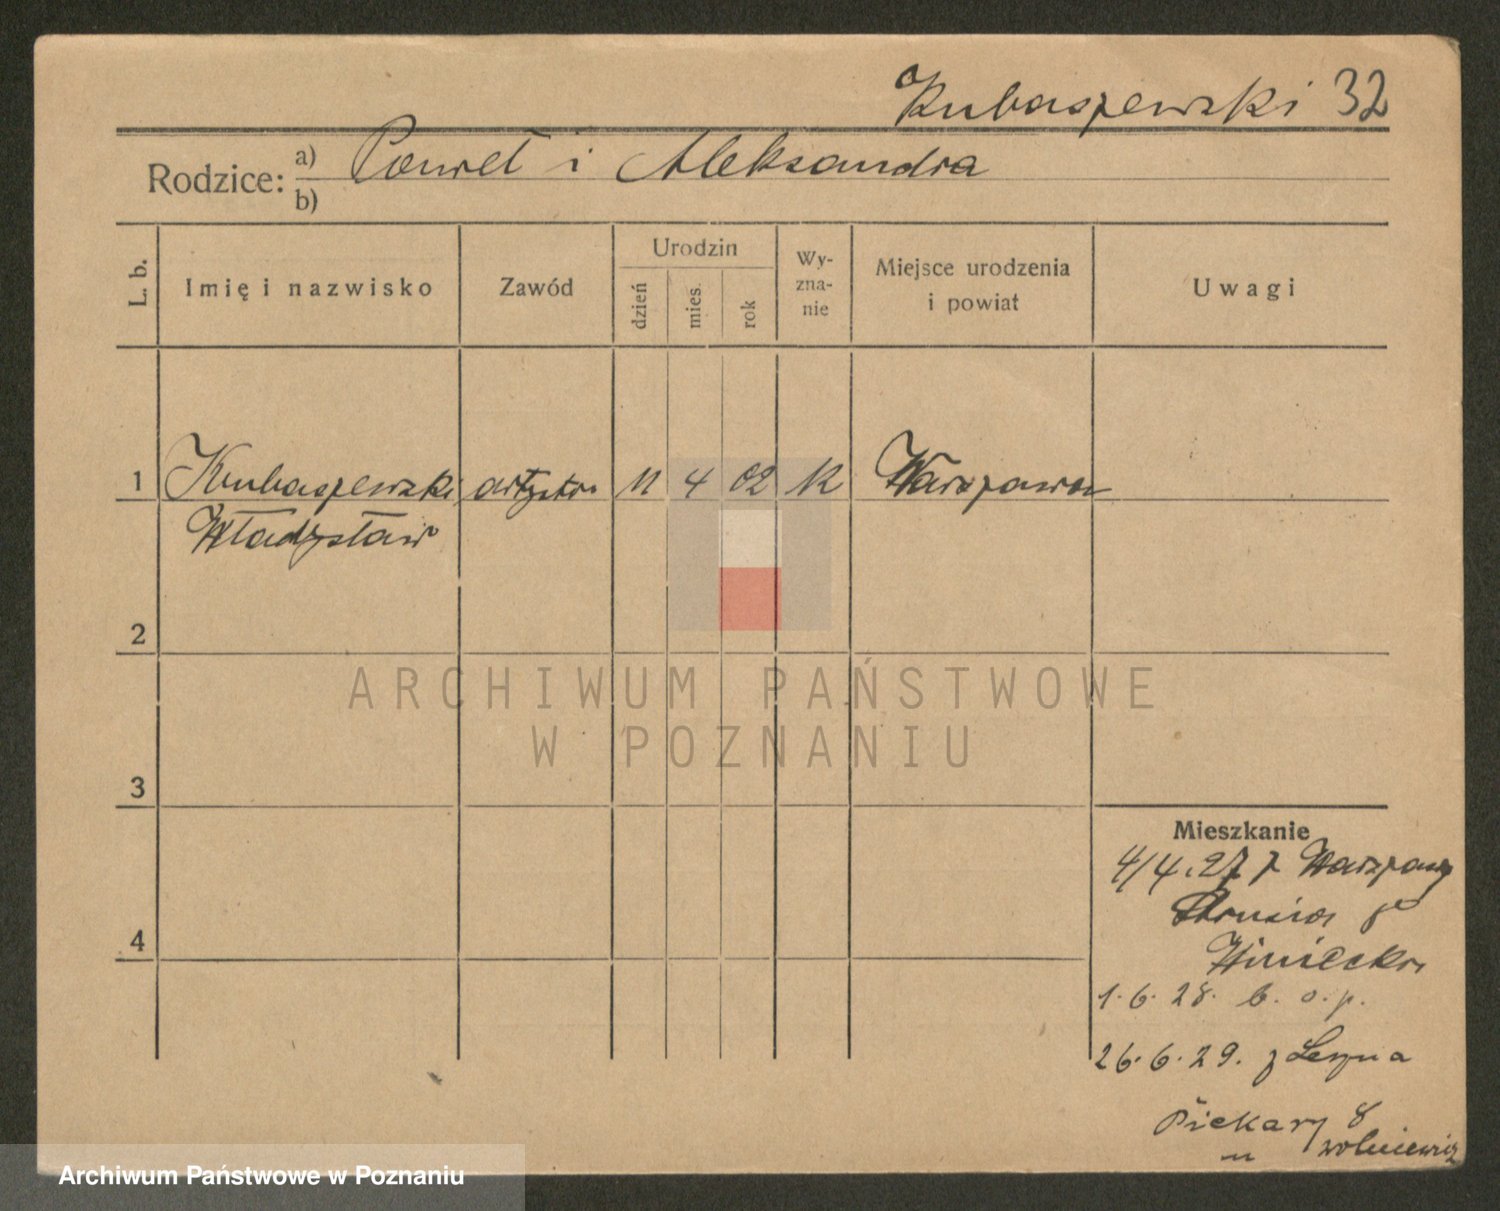 Kubaszewski 32
Rodzice: a) Paweł i Aleksandra
b)
L. b.
Imię i nazwisko
Zawód
Urodzin
dzień
mies.
rok
Wy-
zna-
nie
Miejsce urodzenia
i powiat
Uwagi
1 Kubaszewski artysta 11 4 02 K Warszawa
Władysław
2
3
4
Mieszkanie
4/4.27 z Warszawy
8
Winiecka
1.6.28. b. o. p.
26.6.29. z Leszna
Piekary 8
ARCHIWUM PAŃSTWOWE
W POZNANIU
Archiwum Państwowe w Poznaniu